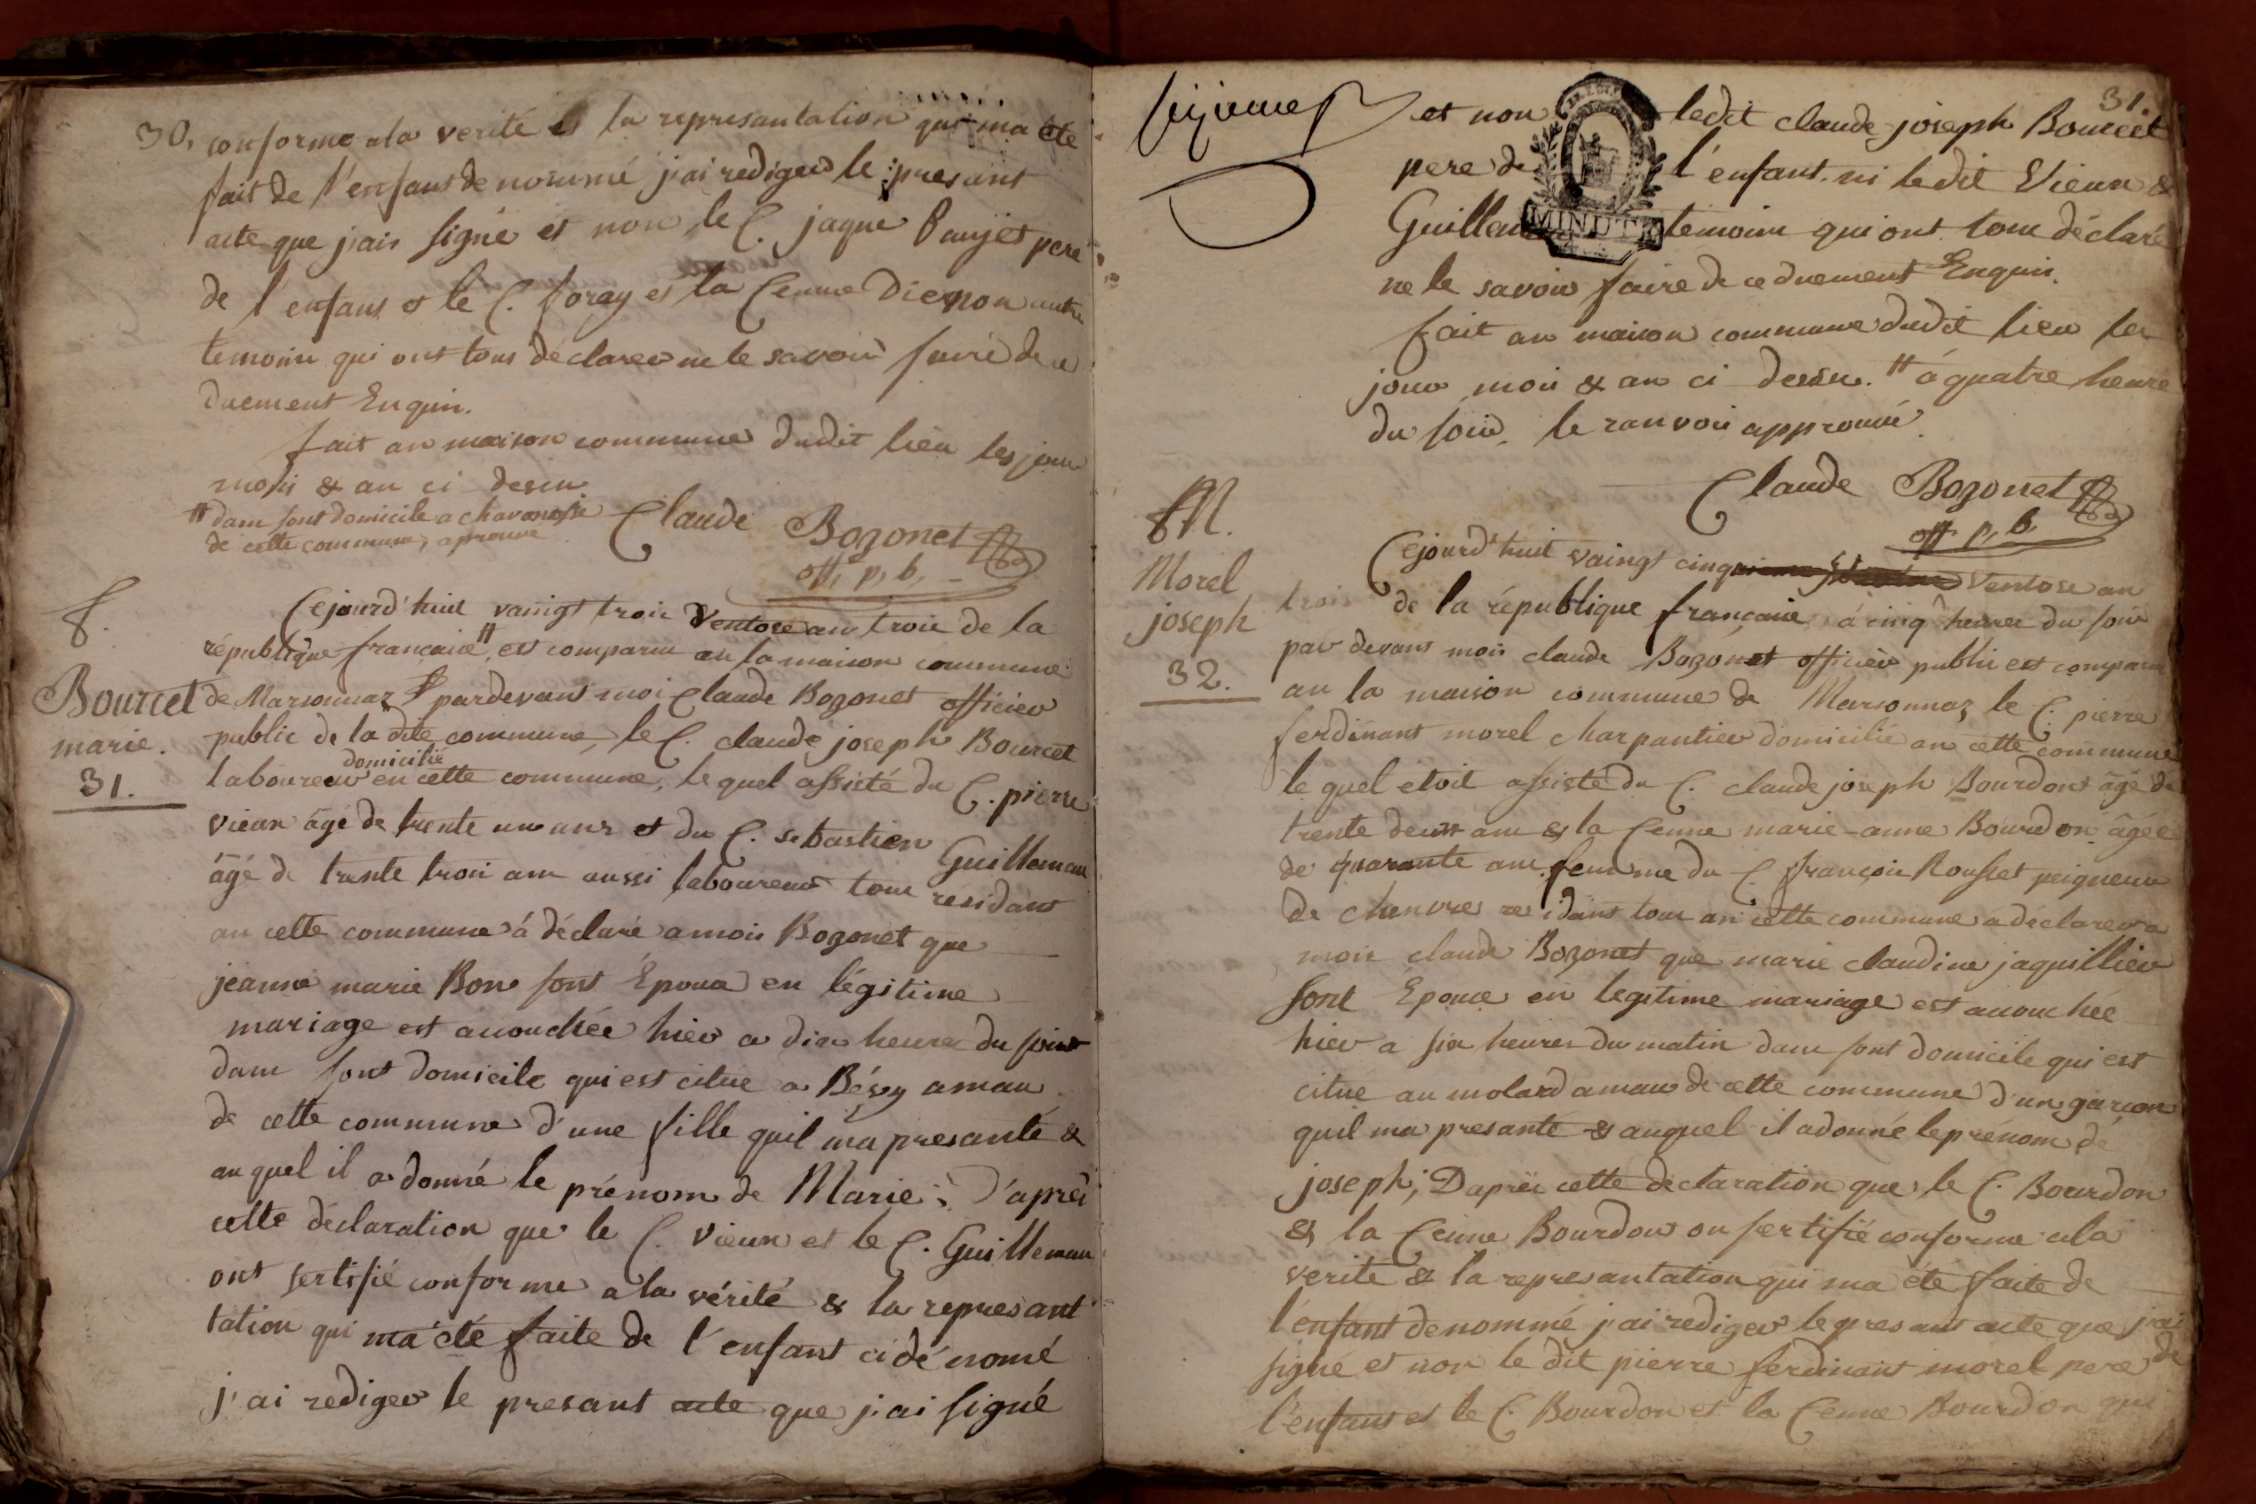 30. conforme ala verité et la represantation qui ma été
fait de l'enfant denommé j'ai rediger le presant
acte que j'ais signé et non le C. jaque paujet pere
de l'enfant et le C. foray et la Cenne
temoin qui ont tous déclarer ne le savoir faire de ce
duement Enquis.
fait an maison commune dudit lieu les jour
mois & an ci desus
# dans sont domicile a
de cette commune, aprouvé
Claude Bozonet
off. p, b,
f.
Bourcet
marie.
31.
Cejourd'huit vaingt trois ventose an trois de la
république francaise #, est comparu an la maison commune
de Marsonnaz pardevant moi Claude Bozonet officier
public de la dite commune, le C. claude joseph Bourcet
laboureur domicilié en cette commune, lequel assisté du C. pierre
vieux âgé de trente un ans et du C. sebastien Guillemau
âgé de trente trois ans aussi laboureur tous residant
an cette commune á déclaré amois Bozonet que
jeanne marie Bon sont Epouse en légitime
mariage est acouchée hier a dix heures du soire
dans sont domicile qui est citué a Bévy amau
de cette commune d'une fille quil ma presanté &
auquel il a donné le prénom de Marie; D'aprés
cette déclaration que le C. vieux et le C. Guillemau
ont sertifié conforme a la vérité & la represant
tation qui ma été faite de l'enfant ci dénomé
j'ai rediger le presant acte que j'ai signé
31.
et non ledit claude joseph Bourcet
pere de l'enfant. ni ledit Vieux &
MINUTE
Guillemau temoins qui ont tous déclaré
ne le savoir faire de ce duement Enquis.
fait an maison commune dudit lieu les
jour mois & an ci desus. # á quatre heure
du soir, le ranvoi approuvé.
Claude Bozonet
off. p, b,
M.
Morel
joseph
32.
Cejourd'huit vaingt cinq ventose an
trois de la république francaise á cinq heures du soir
par devant mois claude Bozonet officier public est comparu
an la maison commune de Marsonnaz le C. pierre
ferdinant morel charpantier domicilié an cette commune
le quel étoit assisté du C. claude joseph Bourdon âgé de
trente deux ans & la Cenne marie-anne Bourdon âgée
de quarante ans femme du C. françois Rousset peigneur
de chenvre residant tous an cette commune a déclarer a
mois claude Bozonet que marie claudine jaquillier
sont Epouse en legitime mariage est acouchée
hier a six heures du matin dans sont domicile qui est
citué au molard amau de cette commune d'un garcon
quil ma presanté & auquel il a donné le prénom dé
joseph; Daprés cette déclaration que le C. Bourdon
& la Cenne Bourdon on sertifié conforme ala
verité & la represantation qui ma été faite de
l'enfant denommé j'ai rediger le presant acte que j'ai
signé et non le dit pierre ferdinant morel pere de
l'enfant et le C. Bourdon et la Cenne Bourdon qui